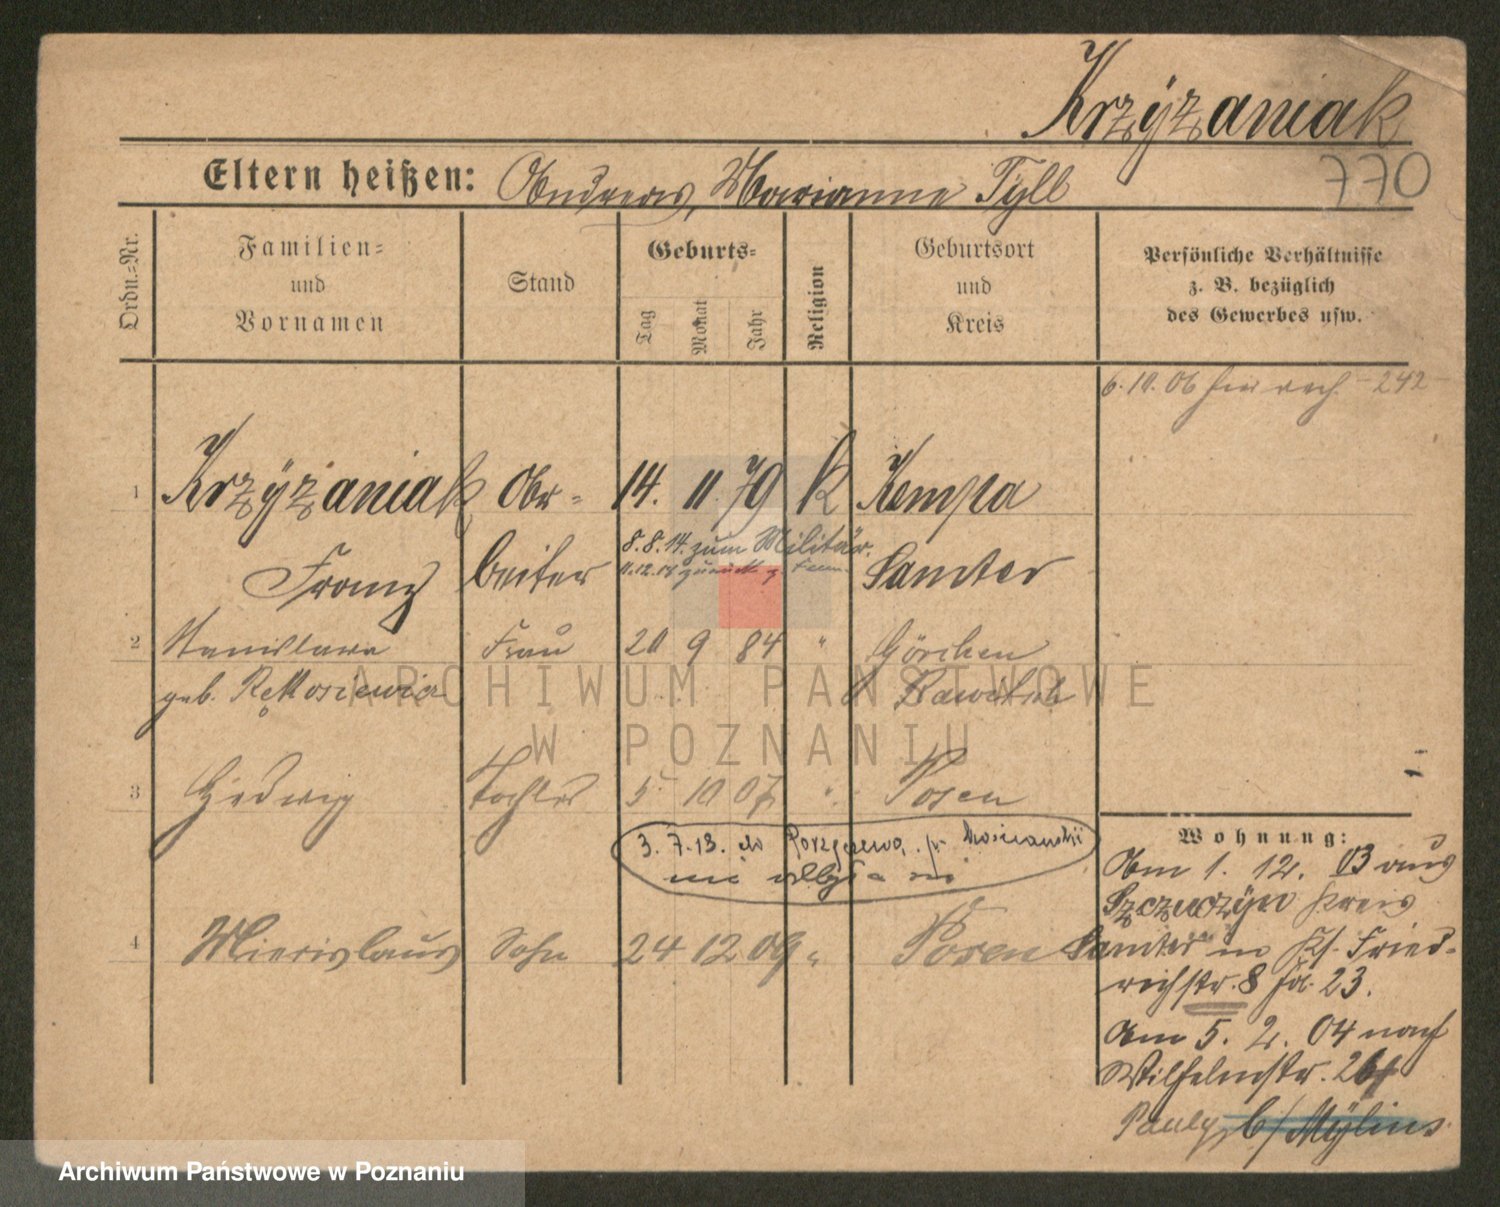 Krzÿzaniak
770
Eltern heißen: Andreas, Marianne Tyll
Ordn.=Nr.
Familien=
und
Vornamen
Stand
Geburts=
Tag
Monat
Jahr
Religion
Geburtsort
und
Kreis
Persönliche Verhältnisse
z. B. bezüglich
des Gewerbes usw.
6. 10. 06 242
1 Krzÿzaniak Ar= 14. 11. 79 k Kempa
8.8.14. zum Militär.
Franz beiter Samter
11.12.18 zurück
2 Stanislawa Frau 20 9 84 " Görchen
geb. Rawitsch
3 Hedwig Tochter 5 10 07 " Posen
3. 7. 13. do
nie odbyła się
4 Mierislaus Sohn 24 12 09 " Posen
Wohnung:
Am 1. 12. 03 aus
Szczuczÿn Kreis
Samter in Fried-
richstr. 8 23.
Am 5. 2. 04 nach
Wilhelmstr. 26
Pauly b/ Mÿlius
ARCHIWUM PAŃSTWOWE
W POZNANIU
Archiwum Państwowe w Poznaniu